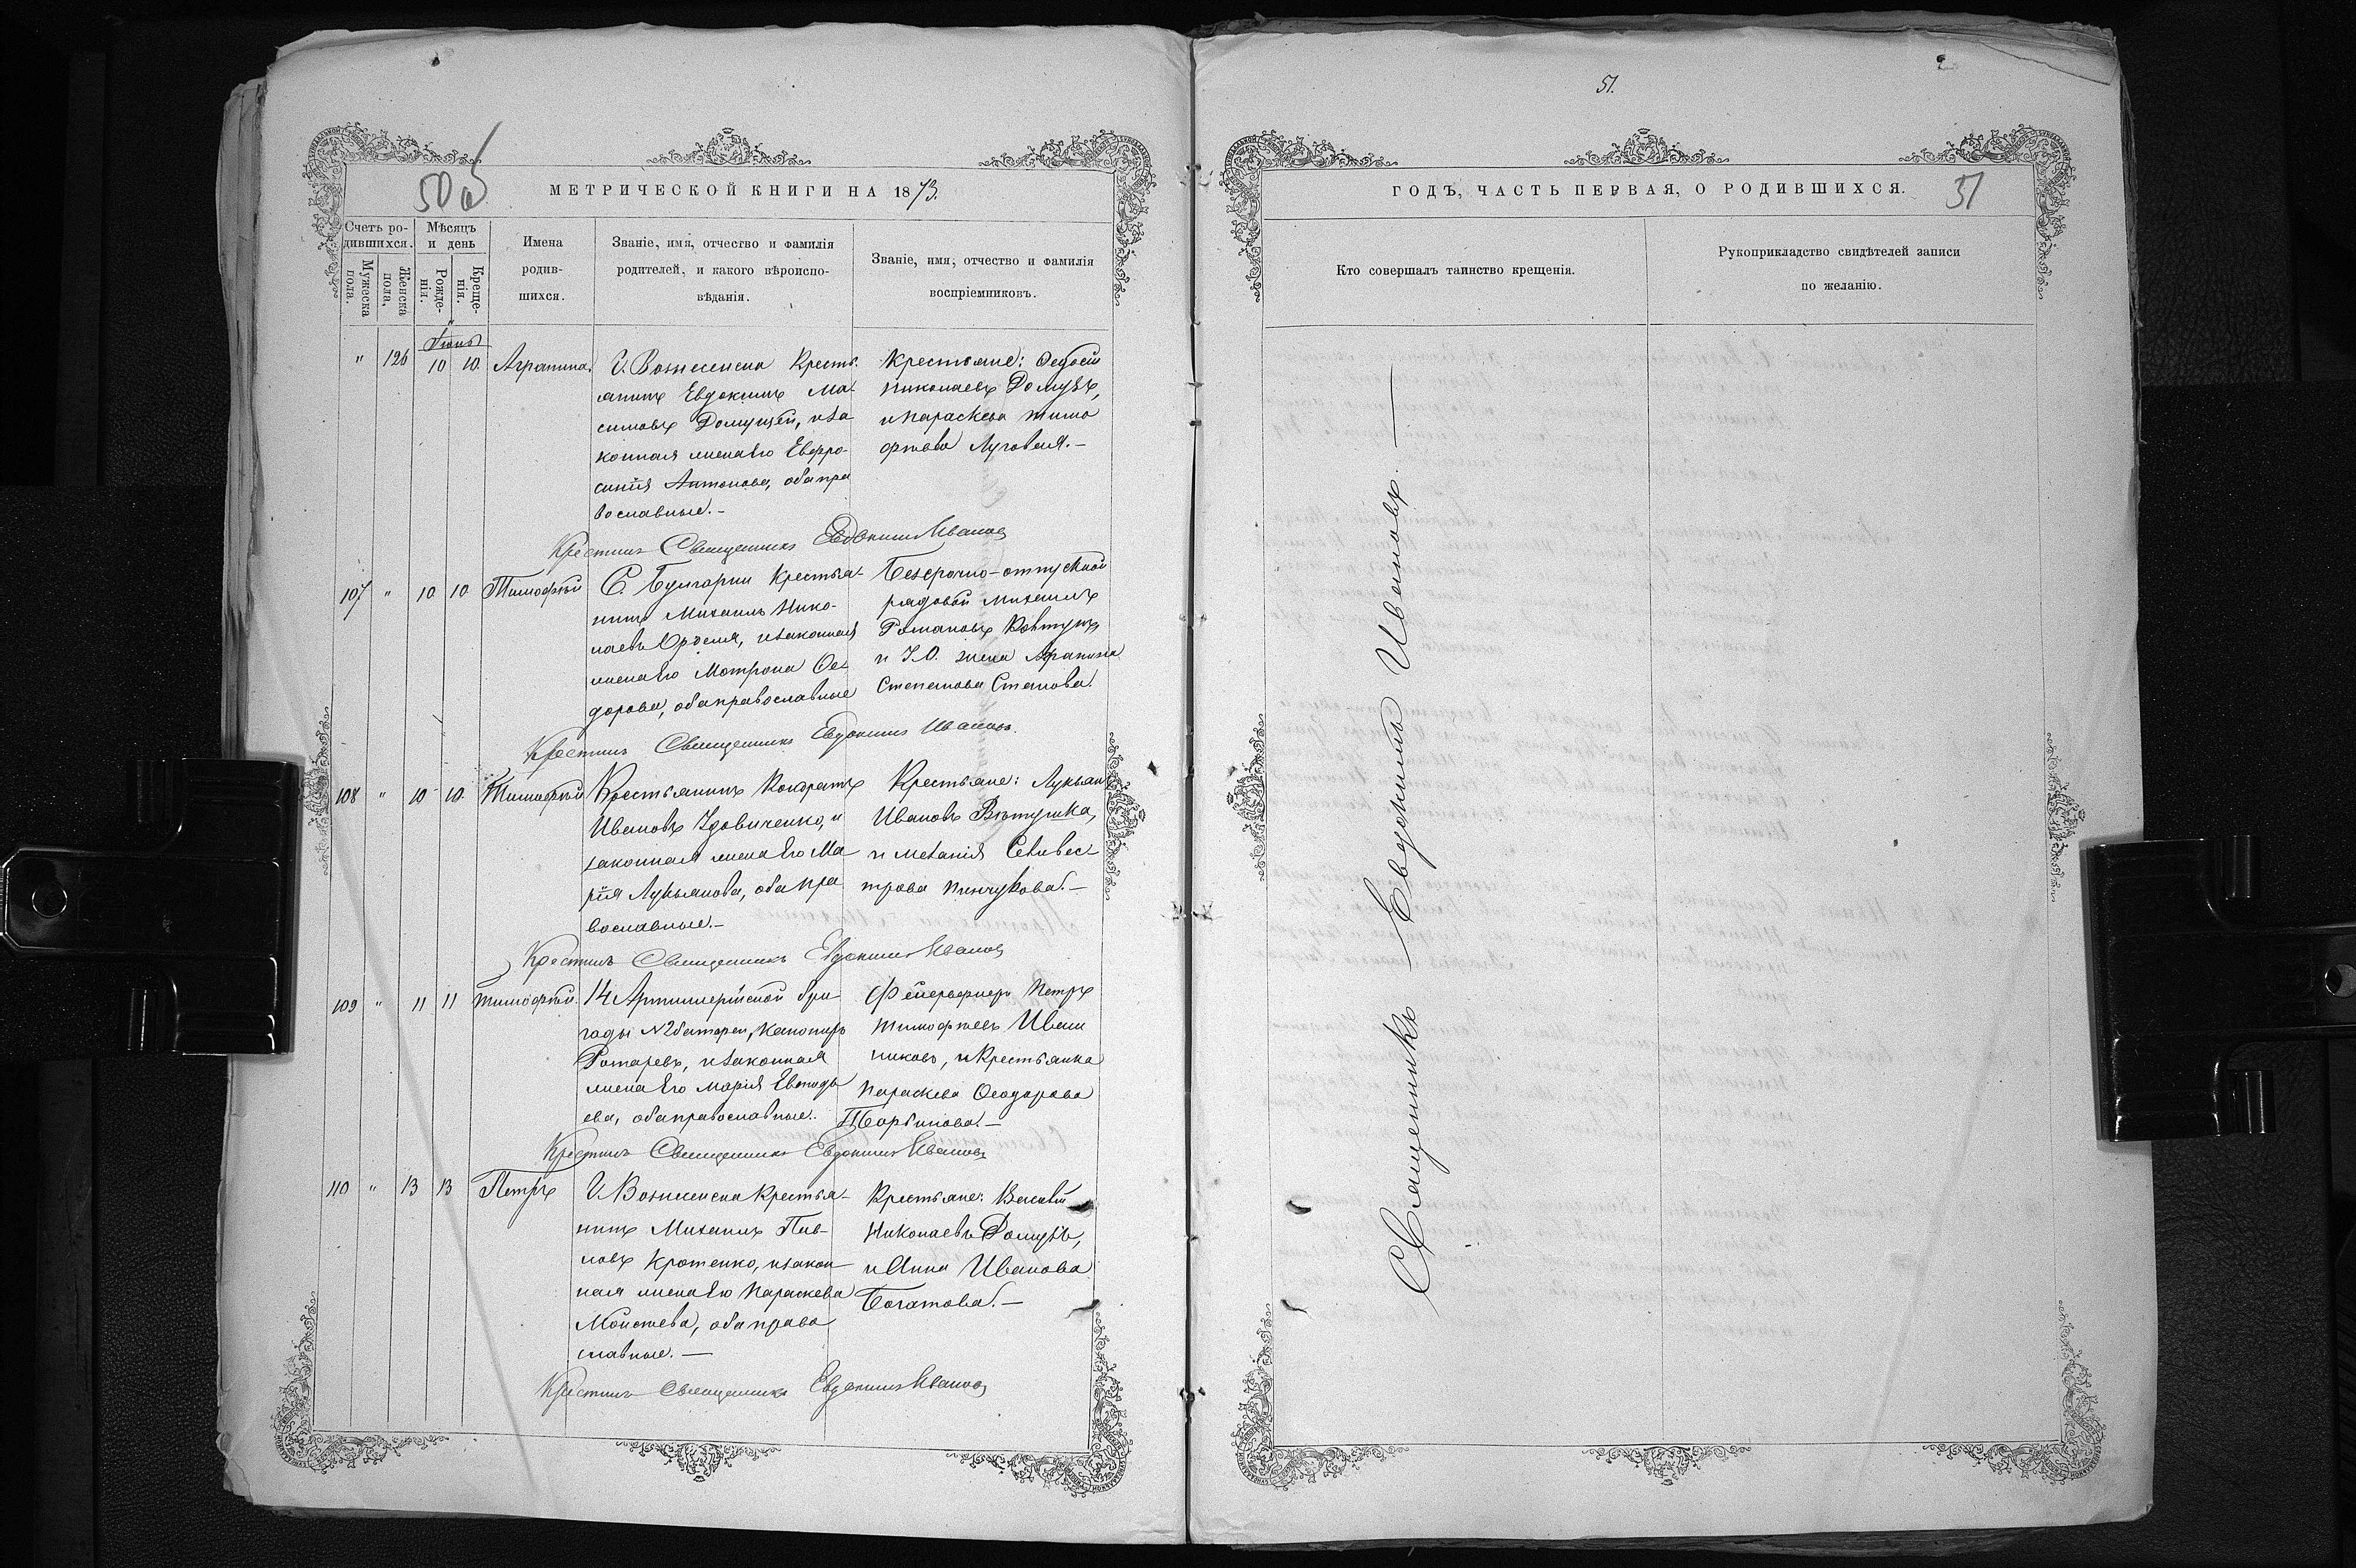 51.
50 об
МЕТРИЧЕСКОЙ КНИГИ НА 1873.
Счетъ ро-
дившихся.
Мужеска
пола.
Женска
пола.
Мѣсяцъ
и день
Рожде-
нія.
Креще-
нія.
Имена
родив-
шихся.
Званіе, имя, отчество и фамилія
родителей, и какого вѣроиспо-
вѣданія.
Званіе, имя, отчество и фамилія
воспріемниковъ.
Іюнь
" 126 10 10. Агрипина.
Г. Вознесенска Кресть-
янинъ Евдокимъ Ма-
симовъ и за
конная жена его Евфро-
синія Антонова, оба пра
вославные.-
Крестьяне: Ѳедосій
Николаевъ
и Параскева Тимо
фѣева Луговая.-
Крестилъ Священникъ Евдокимъ Иванов
107 " 10 10 Тимофѣй
С. Булгарки Крестья-
нинъ Михаилъ Нико-
лаевъ и законная
жена его Мотрона Ѳео-
дорова, оба православные
Безсрочно-отпускной
рядовой Михаилъ
Романовъ Ковтунъ,
и жена
Степанова
Крестилъ Священникъ Евдокимъ Иванов.
108 " 10 10. Тимофѣй
Крестьянинъ Кондратъ
Ивановъ Удовиченко, и
законная жена его Ма
рія Лукьянова, оба пра
вославные.-
Крестьяне: Лукьянъ
Ивановъ
и Меланія Селивес-
трова
Крестилъ Священникъ Евдокимъ Иванов
109 " 11 11 Тимофѣй.
14 Артиллерійской бри-
гады №2 батареи, Канониръ
и законная
жена его Марія
ева, оба православные.
Фейерверкеръ Петръ
Тимофѣевъ Иван
никовъ, и Крестьянка
Параскева Ѳеодорова
Крестилъ Священникъ Евдокимъ Иванов
110 " 13 13 Петръ
Г. Вознесенска Крестья-
нинъ Михаилъ Пав-
ловъ Кротенко, и закон
ная жена его Параскева
Моисеева, оба право
славные.-
Крестьяне: Василій
Николаевъ
и Анна Иванова
Богатова.-
Крестилъ Священникъ Евдокимъ Иванов
ГОДЪ, ЧАСТЬ ПЕРВАЯ, О РОДИВШИХСЯ.
51
Кто совершалъ таинство крещенія.
Рукоприкладство свидѣтелей записи
по желанію.
Священникъ Евдокимъ Ивановъ.